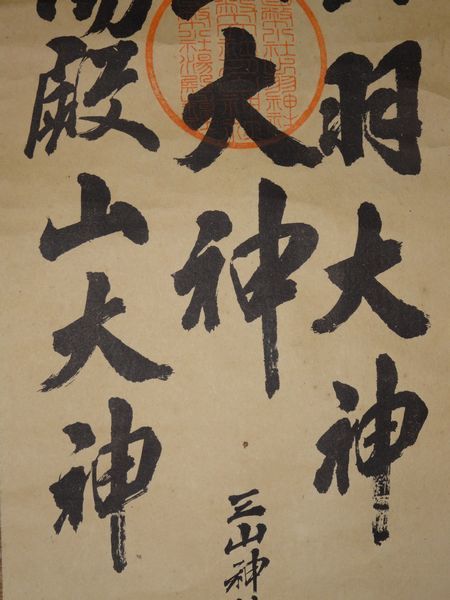 羽大神
大神
殿山大神
三山神